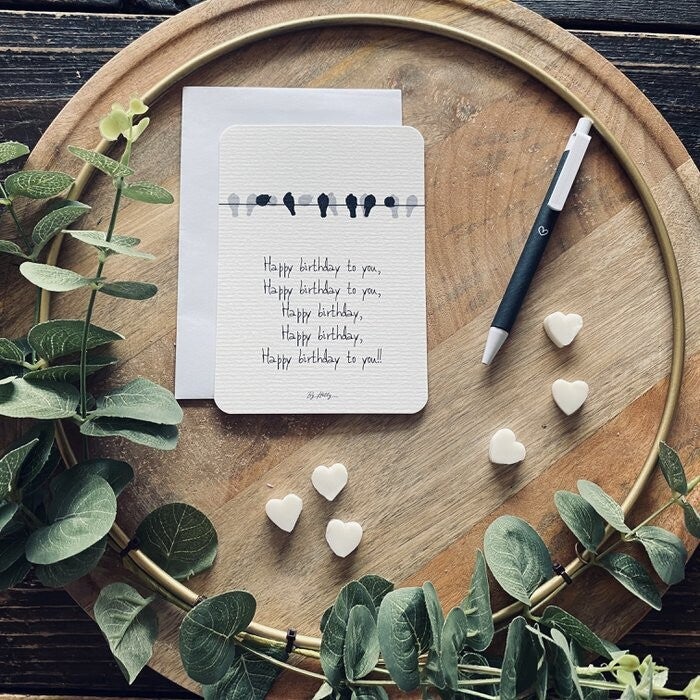 Happy birthday to you,
Happy birthday to you,
Happy birthday,
Happy birthday,
Happy birthday to you!!